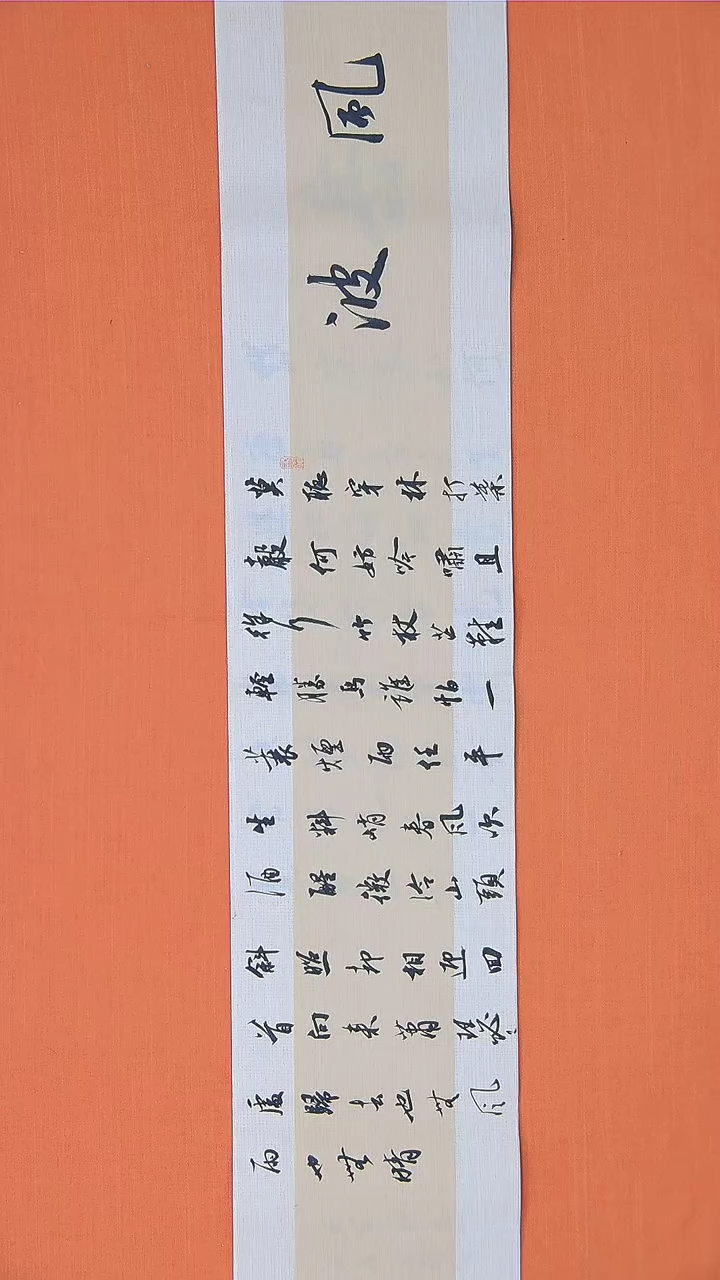 風
波
莫聽穿林打葉
聲何妨吟嘯且
徐行竹杖芒鞋
輕勝馬誰怕一
蓑煙雨任平
生料峭春風吹
酒醒微冷山頭
斜照却相迎回
首向來蕭瑟
處歸去也無風
雨也無晴